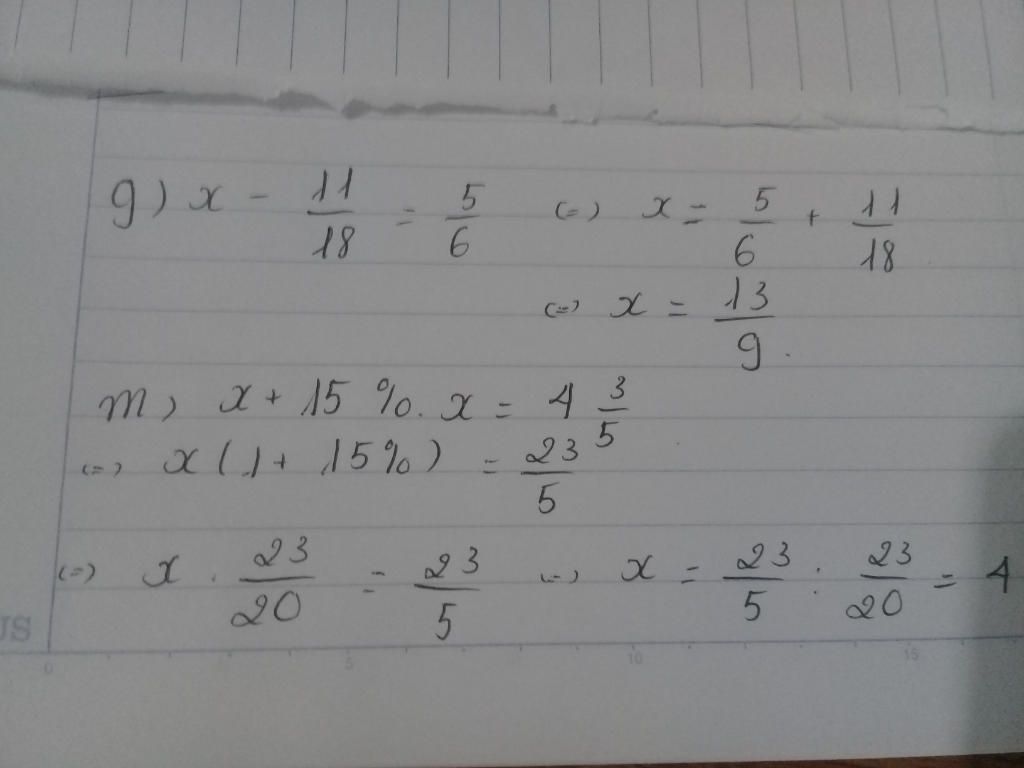 g) x - 11/18 = 5/6 (=) x = 5/6 + 11/18
(=) x = 13/9.
m) x + 15%. x = 4 3/5
(=) x (1 + 15%) = 23/5
(=) x . 23/20 = 23/5 (=) x = 23/5 : 23/20 = 4
US
0 5 10 15